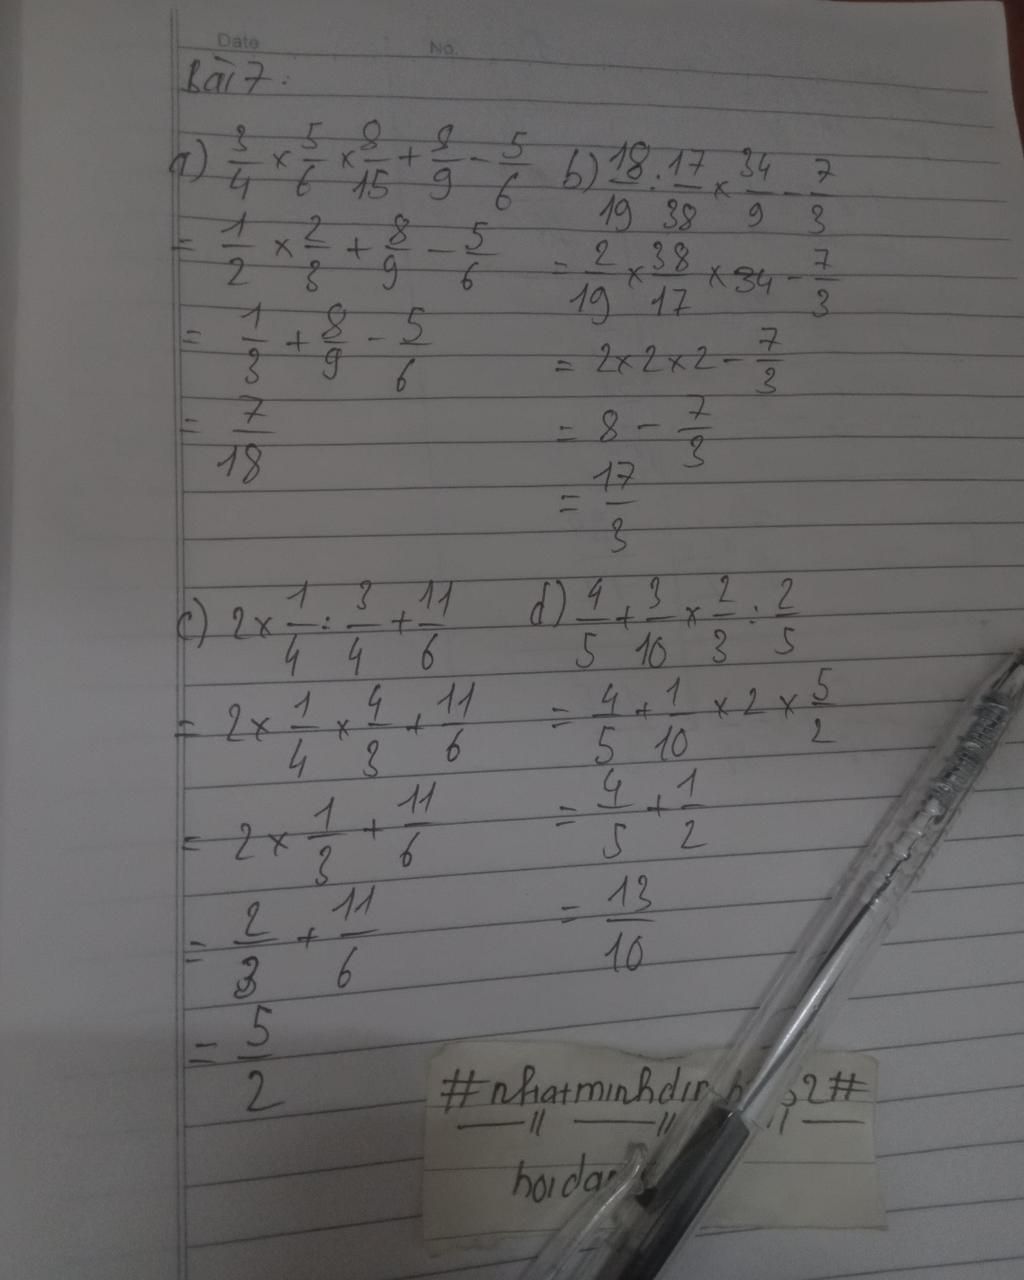 Date No.
Bài 7:
a) 3/4 × 5/6 × 8/15 + 8/9 - 5/6
= 1/2 × 2/3 + 8/9 - 5/6
= 1/3 + 8/9 - 5/6
= 7/18
b) 18/19 : 17/38 × 34/9 - 7/3
= 2/19 × 38/17 × 34 - 7/3
= 2 × 2 × 2 - 7/3
= 8 - 7/3
= 17/3
c) 2 × 1/4 : 3/4 + 11/6
= 2 × 1/4 × 4/3 + 11/6
= 2 × 1/3 + 11/6
= 2/3 + 11/6
= 5/2
d) 4/5 + 3/10 × 2/3 : 2/5
= 4/5 + 1/10 × 2 × 5/2
= 4/5 + 1/2
= 13/10